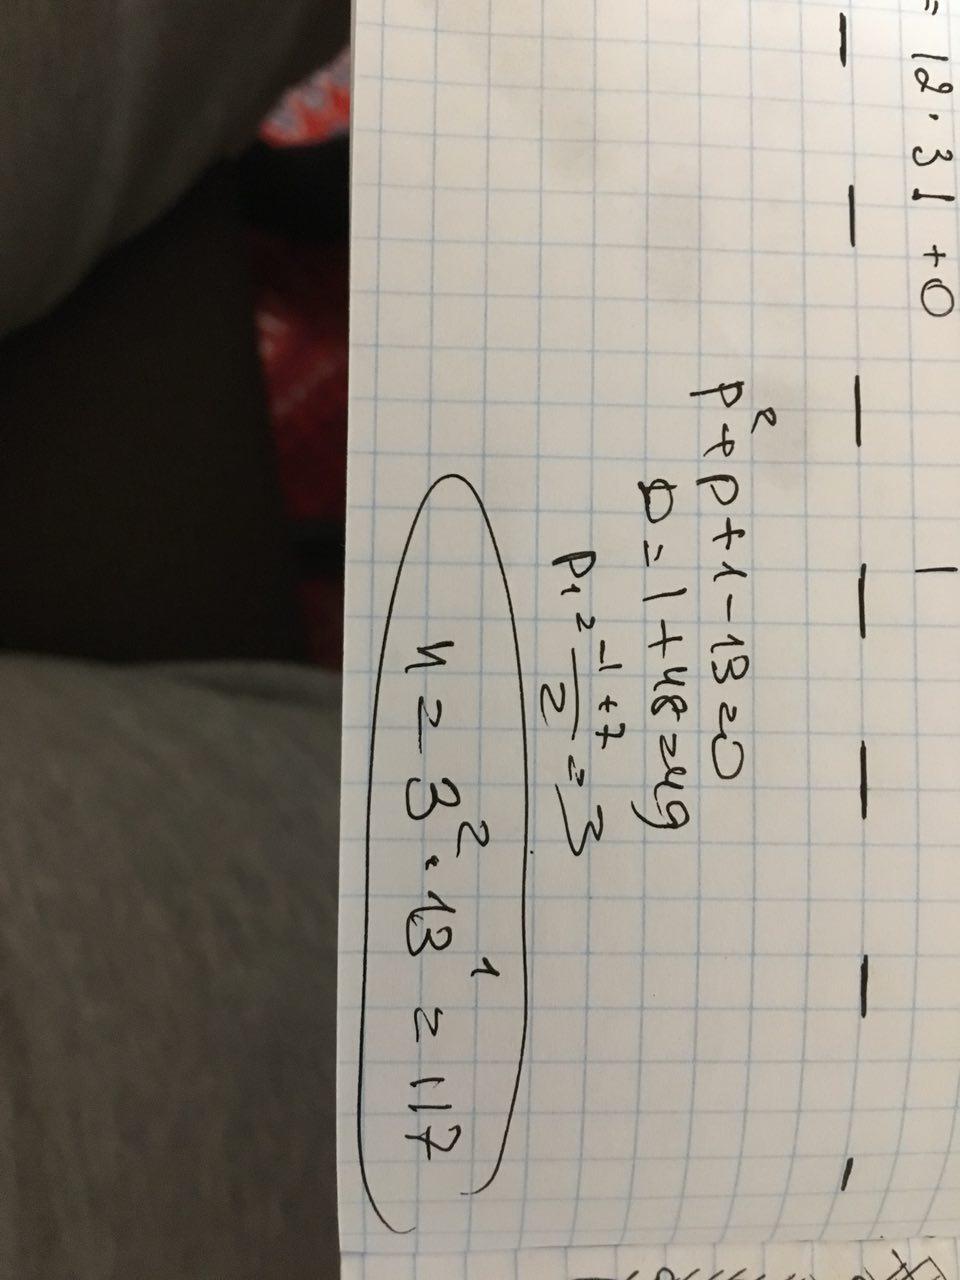 = 12 · 31 + 0
p² + p + 1 - 13 = 0
D = 1 + 48 = 49
p₁ = \frac{-1 + 7}{2} = 3
n = 3² · 13¹ = 117